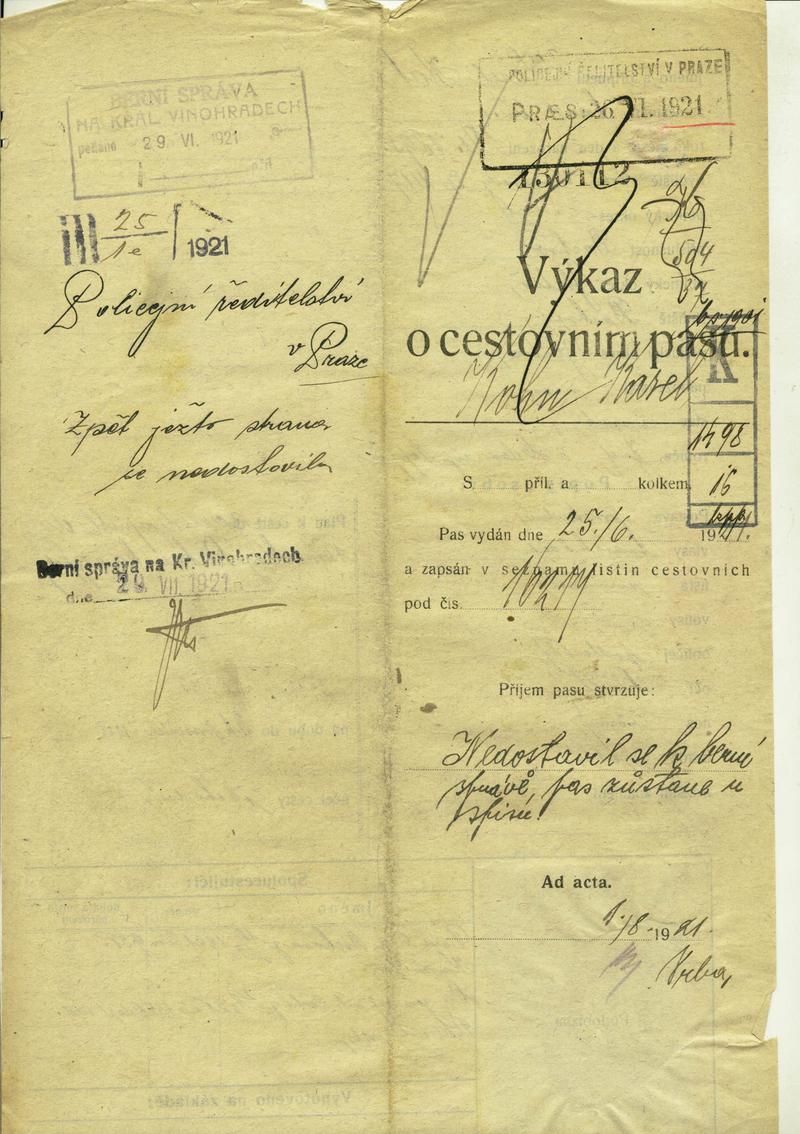 BERNÍ SPRÁVA
NA KRÁL VINOHRADECH
29 VI. 1921
III 25/1e 1921
Policejní ředitelství
v Praze
Zpět ježto strana
se nedostavila
Berní správa na Kr. Vinohradech
dne 29 VII. 1921
POLICEJNÍ ŘEDITELSTVÍ V PRAZE
PRÆS: 26 VI. 1921
130112
Výkaz
o cestovním pasu.
Kohn Karel
K
1498
15
S příl. a kolkem
Pas vydán dne 25./6. 1921.
a zapsán v seznamu listin cestovních
pod čís.
Příjem pasu stvrzuje:
Nedostavil se k berní
správě, pas zůstane u
spisů.
Ad acta.
1./8. 1921.
Vrba